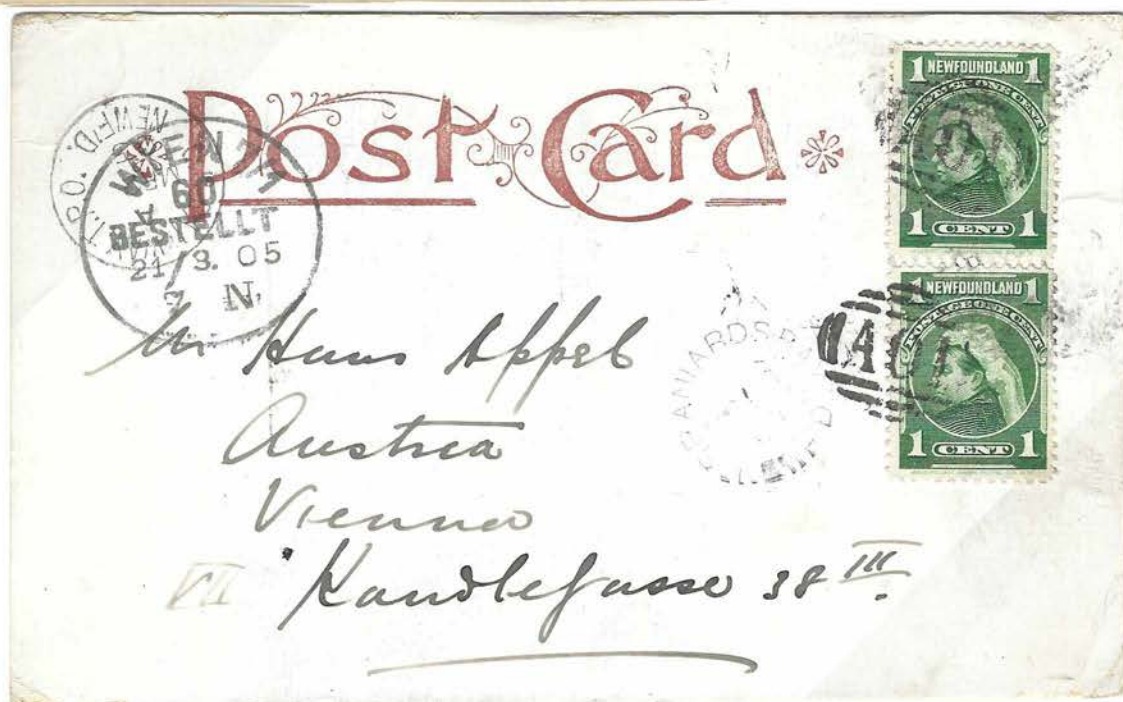 Post Card
NEWF'D.
WIEN 7/1
60
BESTELLT
21/3. 05
N.
1 NEWFOUNDLAND 1
POSTAGE ONE CENT
1 CENT 1
1 NEWFOUNDLAND 1
POSTAGE ONE CENT
1 CENT 1
SPANIARDS BAY
NEWF'D
Mr Hans Appel
Austria
Vienna
VII Kandlegasse 38 III.